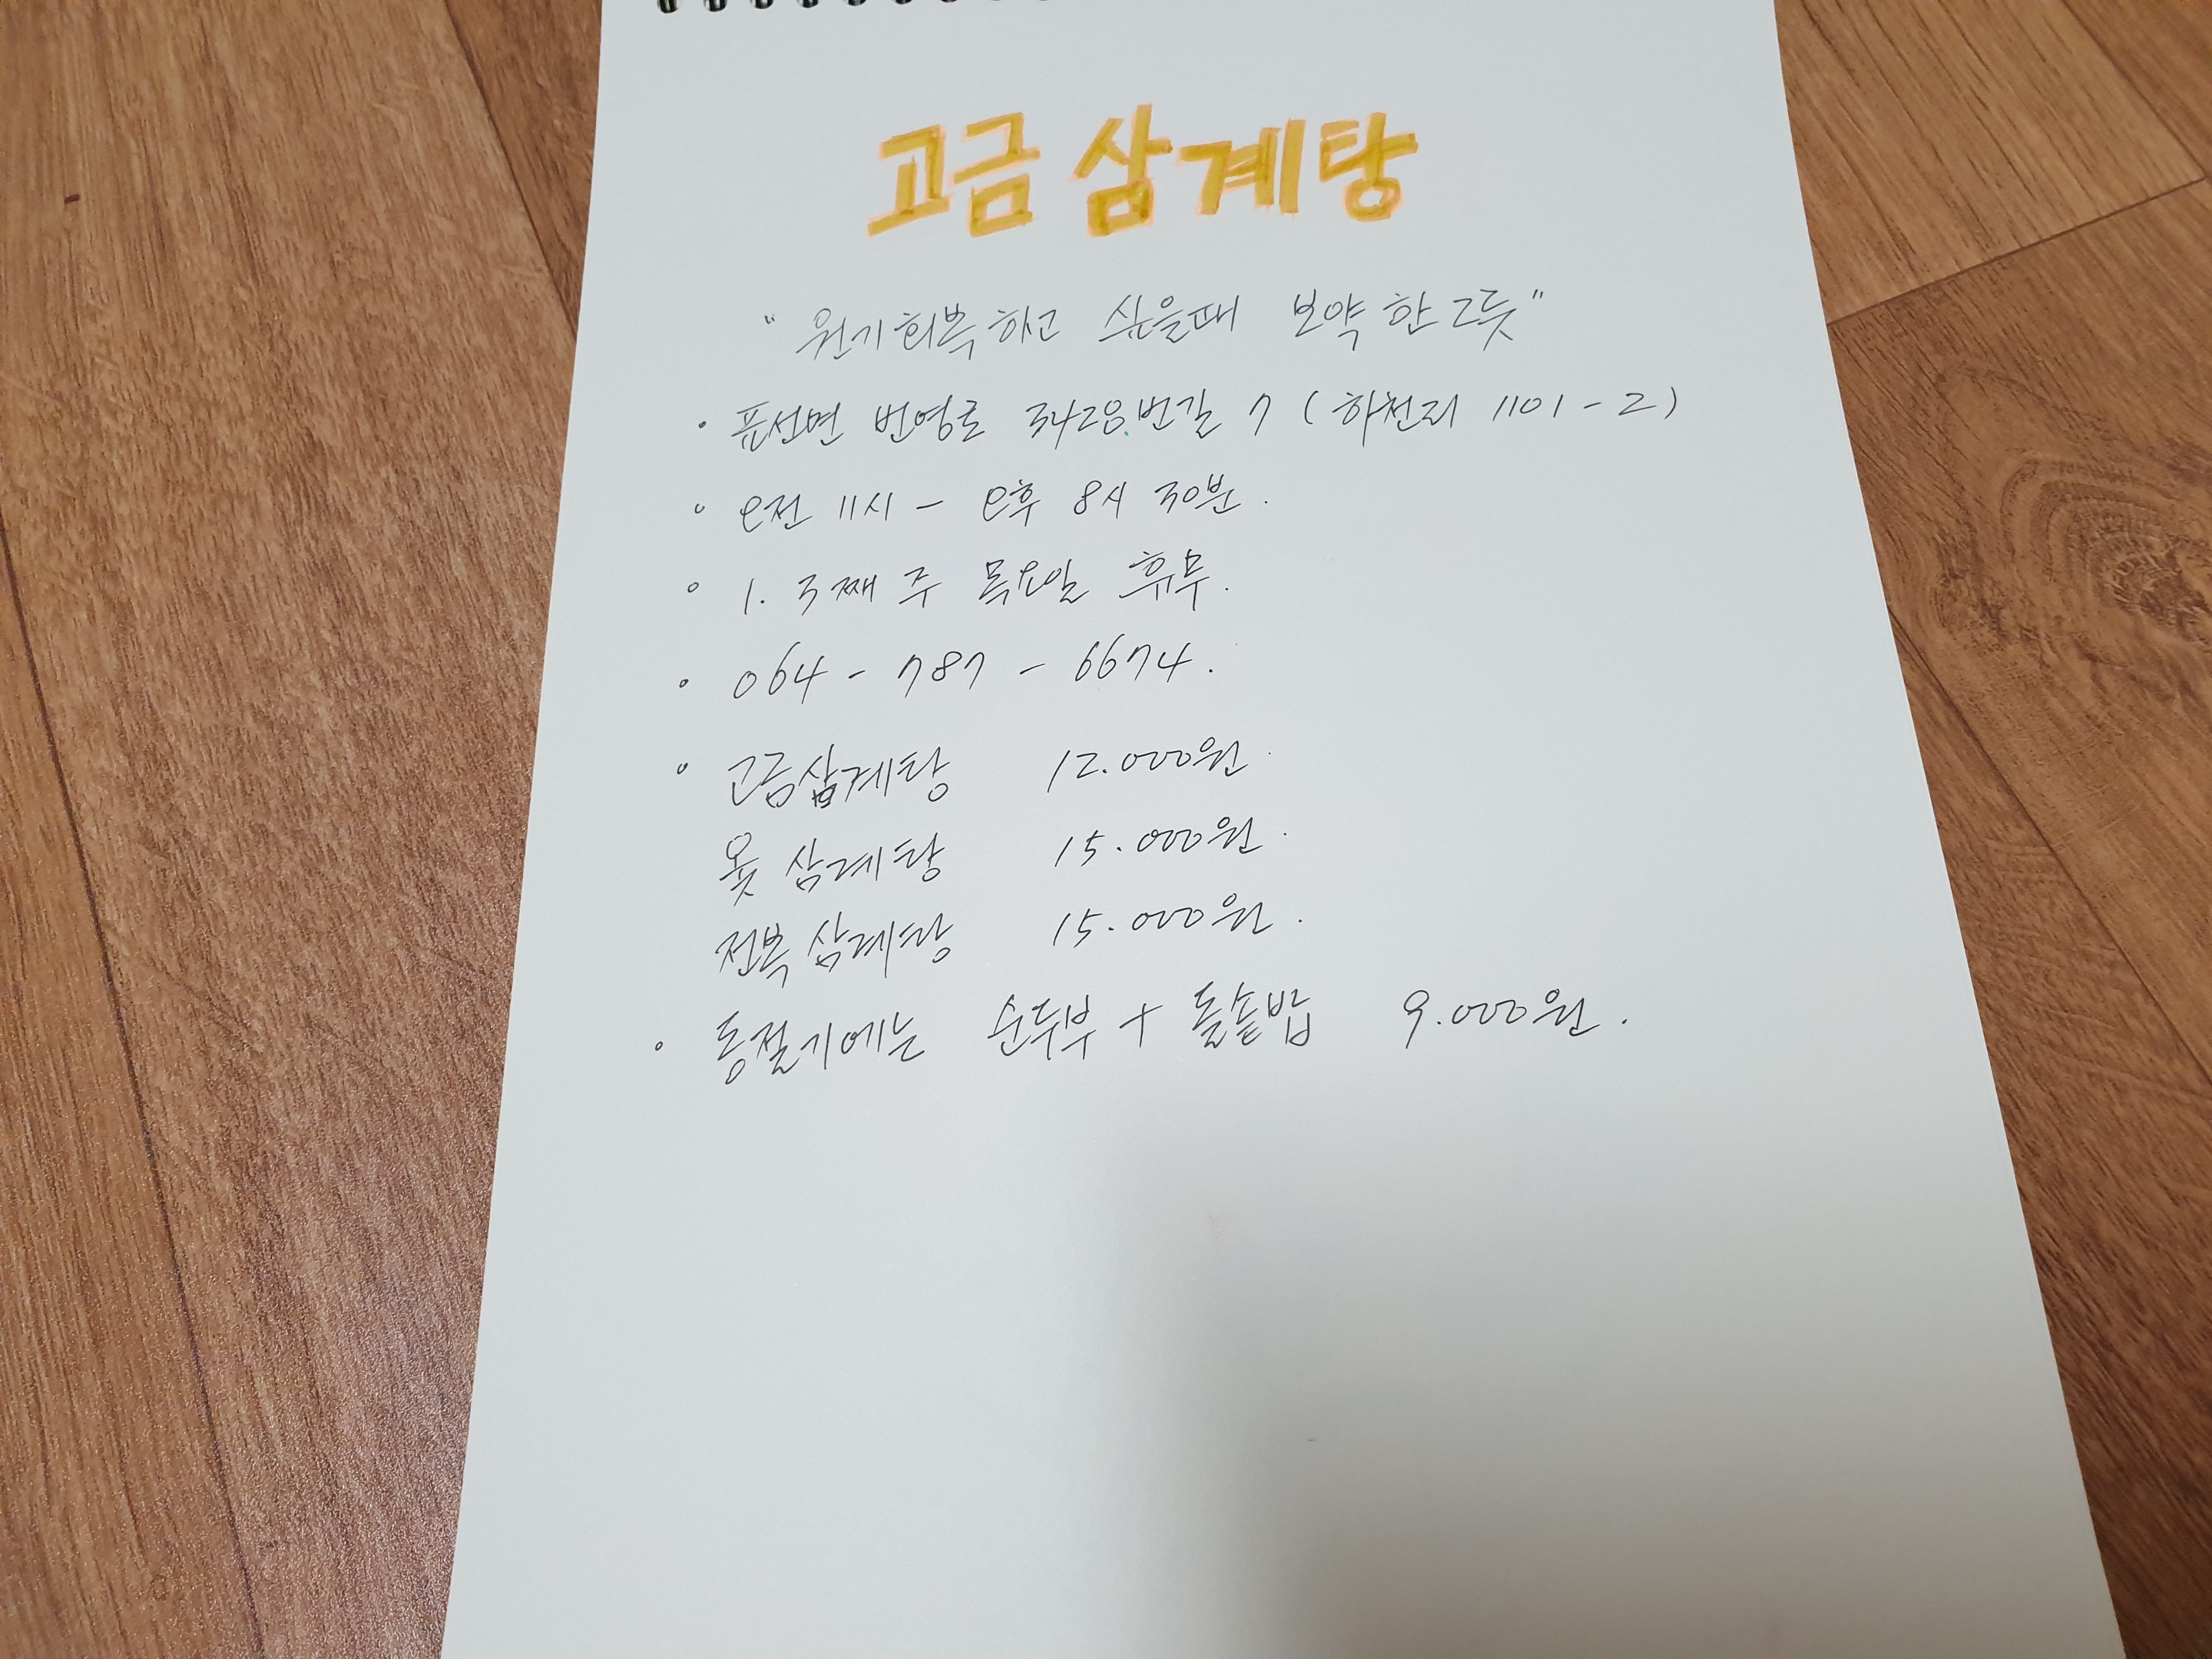 고금삼계탕
"원기회복하고 싶을때 보약한그릇"
• 표선면 번영로 3428번길 7 (하천리 1101-2)
• 오전 11시 - 오후 8시 30분.
• 1. 3째 주 목요일 휴무.
• 064 - 787 - 6674.
• 고금삼계탕 12.000원.
옻삼계탕 15.000원.
전복삼계탕 15.000원.
• 동절기에는 순두부 + 돌솥밥 9.000원.